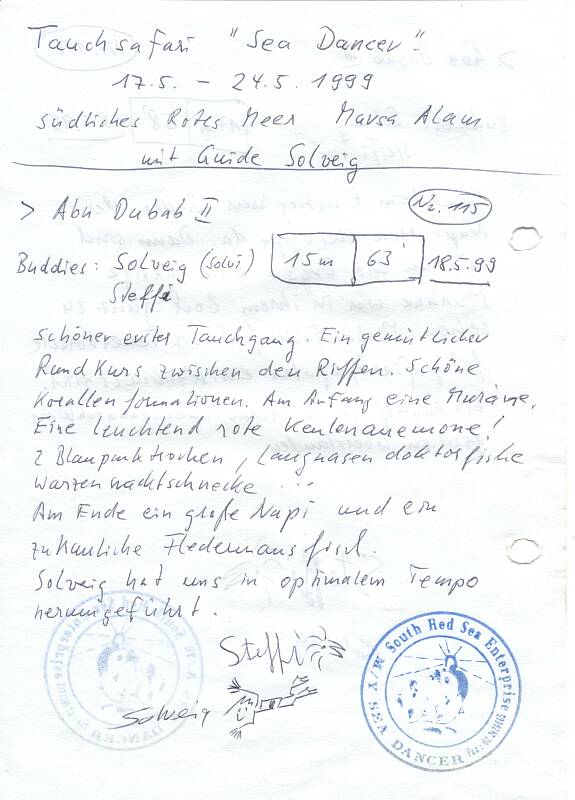 Tauchsafari "Sea Dancer"
17.5. - 24.5. 1999
südliches Rotes Meer Marsa Alam
mit Guide Solveig
> Abu Dabab II Nr. 115
Buddies: Solveig (Solvi) 15m 63' 18.5.99
Steffi
Schöner erster Tauchgang. Ein gemütlicher
Rundkurs zwischen den Riffen. Schöne
Korallenformationen. Am Anfang eine Muräne.
Eine leuchtend rote Keulenanemone!
2 Blaupunktrochen, Langnasendoktorfische
Warzennacktschnecke ...
Am Ende ein große Napi und ein
zutrauliche Fledermausfisch.
Solveig hat uns in optimalem Tempo
herumgeführt.
Steffi
Solveig
M/Y South Red Sea Enterprise
SEA DANCER